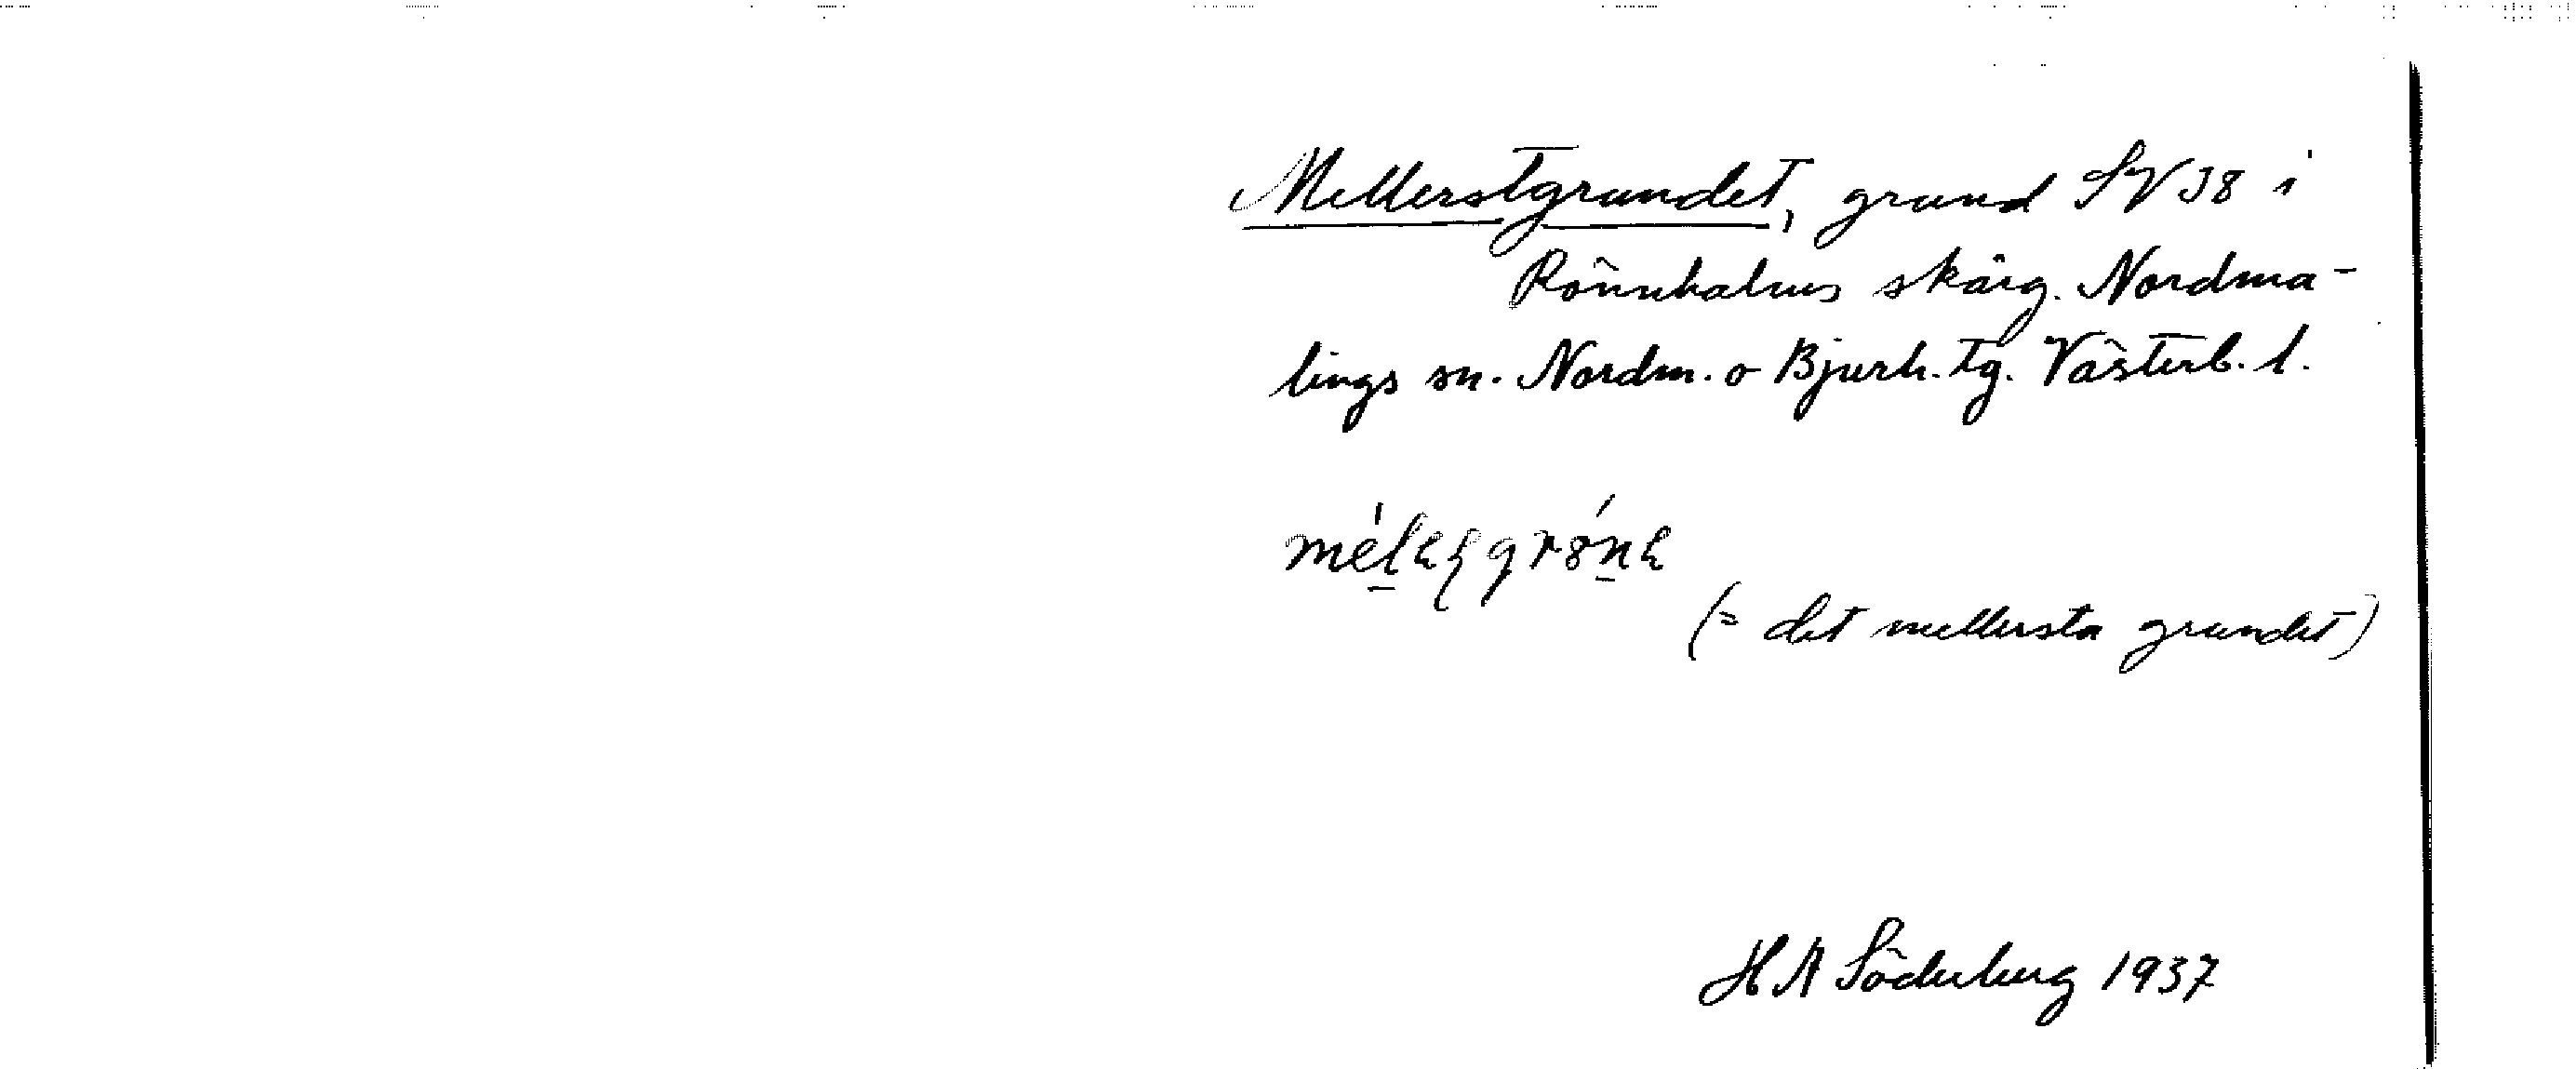 Mellerstgrundet, grund SV 38 i
Rönnholms skärg. Nordma-
lings sn. Nordm. o Bjurh. tg. Västerb. l.
(= det mellersta grundet)
H A Söderberg 1937